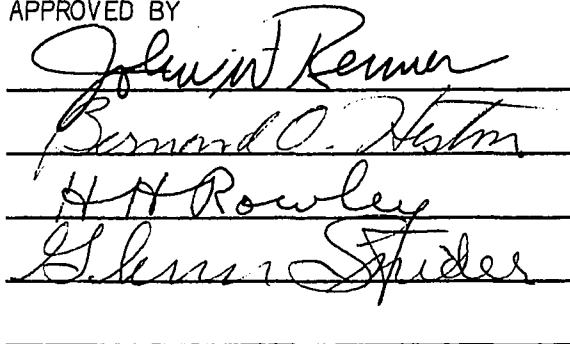 APPROVED BY
John W Renner
Bernard O. Heston
H H Rowley
Glenn Snider